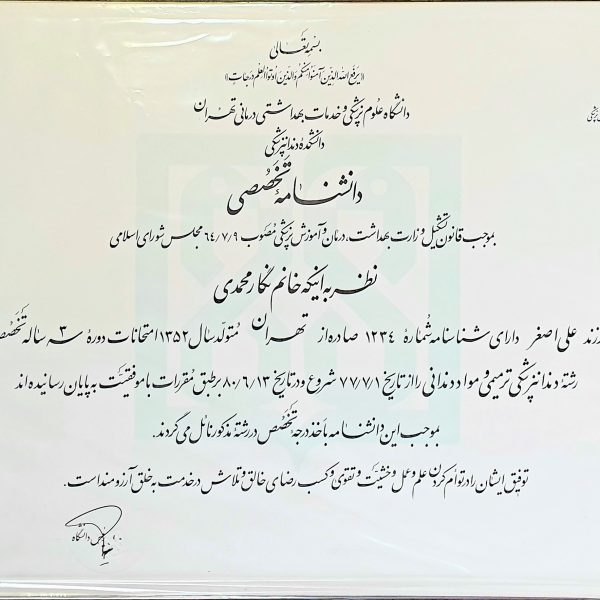 بسمه تعالی
«یرفع الله الذین آمنوا منکم والذین اوتوا العلم درجات»
دانشگاه علوم پزشکی و خدمات بهداشتی درمانی تهران
دانشکده دندانپزشکی
دانشنامه تخصصی
بموجب قانون تشکیل وزارت بهداشت، درمان و آموزش پزشکی مصوب ۶۴/۷/۹ مجلس شورای اسلامی
نظر به اینکه خانم نگار محمدی
علی اصغر دارای شناسنامه شمارهٔ ۱۲۳۴ صادره از تهران متولد سال ۱۳۵۲ امتحانات دورهٔ ۳ ساله
رشتهٔ دندانپزشکی ترمیمی و مواد دندانی را از تاریخ ۷۷/۷/۱ شروع و در تاریخ ۸۰/۶/۱۳ بر طبق مقررات با موفقیت به پایان رسانیده اند
بموجب این دانشنامه با اخذ درجه تخصص در رشته مذکور نائل می گردند.
توفیق ایشان را در توأم کردن علم و عمل و خشیت و تقوی و کسب رضای خالق و تلاش در خدمت به خلق آرزومند است.
دانشگاه